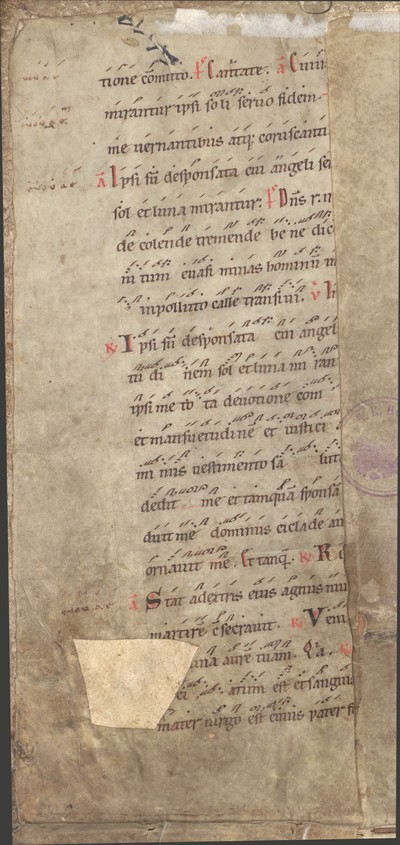 tione comitto. P Cantate. a Cuiu
mirantur ipsi soli seruo fidem
me uernantibus atq; coruscanti
a Ipsi sū desponsata cui angeli se
sol et luna mirantur. P Dn̄s r.
de colende tremende be ne dic
ni tum euasi minas hominū
inpolluto calle transiui. v
R Ipsi sū desponsata cui angel
tu di nem sol et luna mi ran
ipsi me to ta deuotione com
et mansuetudinē et iusti ci
mi nis uestimento sa lut
dedit me et tamquā sponsā
duit me dominus ciclade au
ornauit me. Et tanq. R
a Stat a dextris eius agnus niu
martire c̄secrauit. R Veni
aure tuam. Q'a.
arium est et sangui
mater uirgo est cuius pater fe